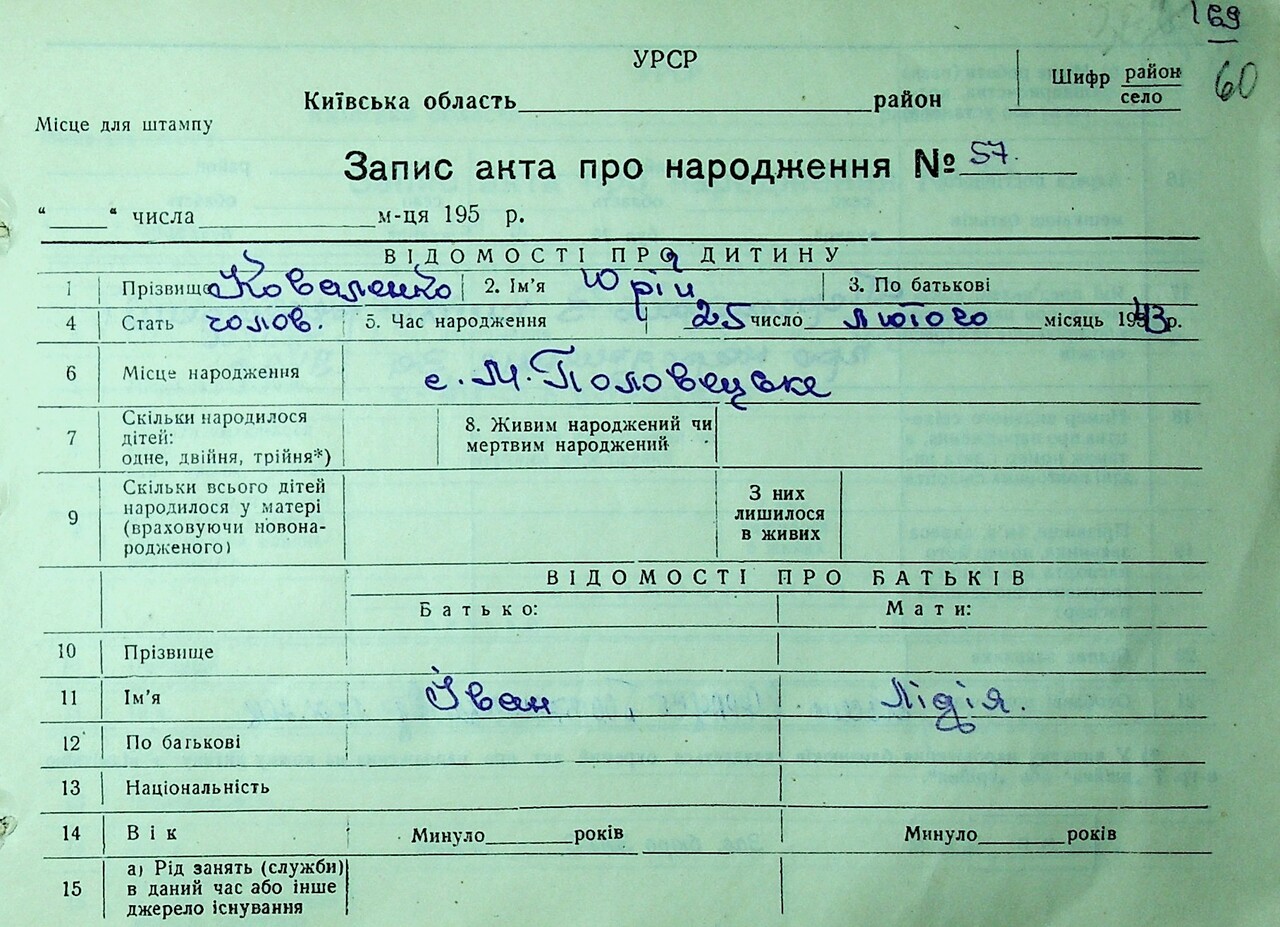 169
УРСР
Шифр район
село
60
Київська область район
Місце для штампу
Запис акта про народження № 57.
“ “ числа м-ця 195 р.
ВІДОМОСТІ ПРО ДИТИНУ
1 Прізвище Коваленко 2. Ім'я Юрій 3. По батькові
4 Стать чолов. 5. Час народження 25 число лютого місяць 1943 р.
6 Місце народження с. М. Половецьке
7 Скільки народилося
дітей:
одне, двійня, трійня*)
8. Живим народжений чи
мертвим народжений
9 Скільки всього дітей
народилося у матері
(враховуючи новона-
родженого)
З них
лишилося
в живих
ВІДОМОСТІ ПРО БАТЬКІВ
Батько: Мати:
10 Прізвище
11 Ім'я Іван Лідія
12 По батькові
13 Національність
14 Вік Минуло років Минуло років
15 а) Рід занять (служби)
в даний час або інше
джерело існування